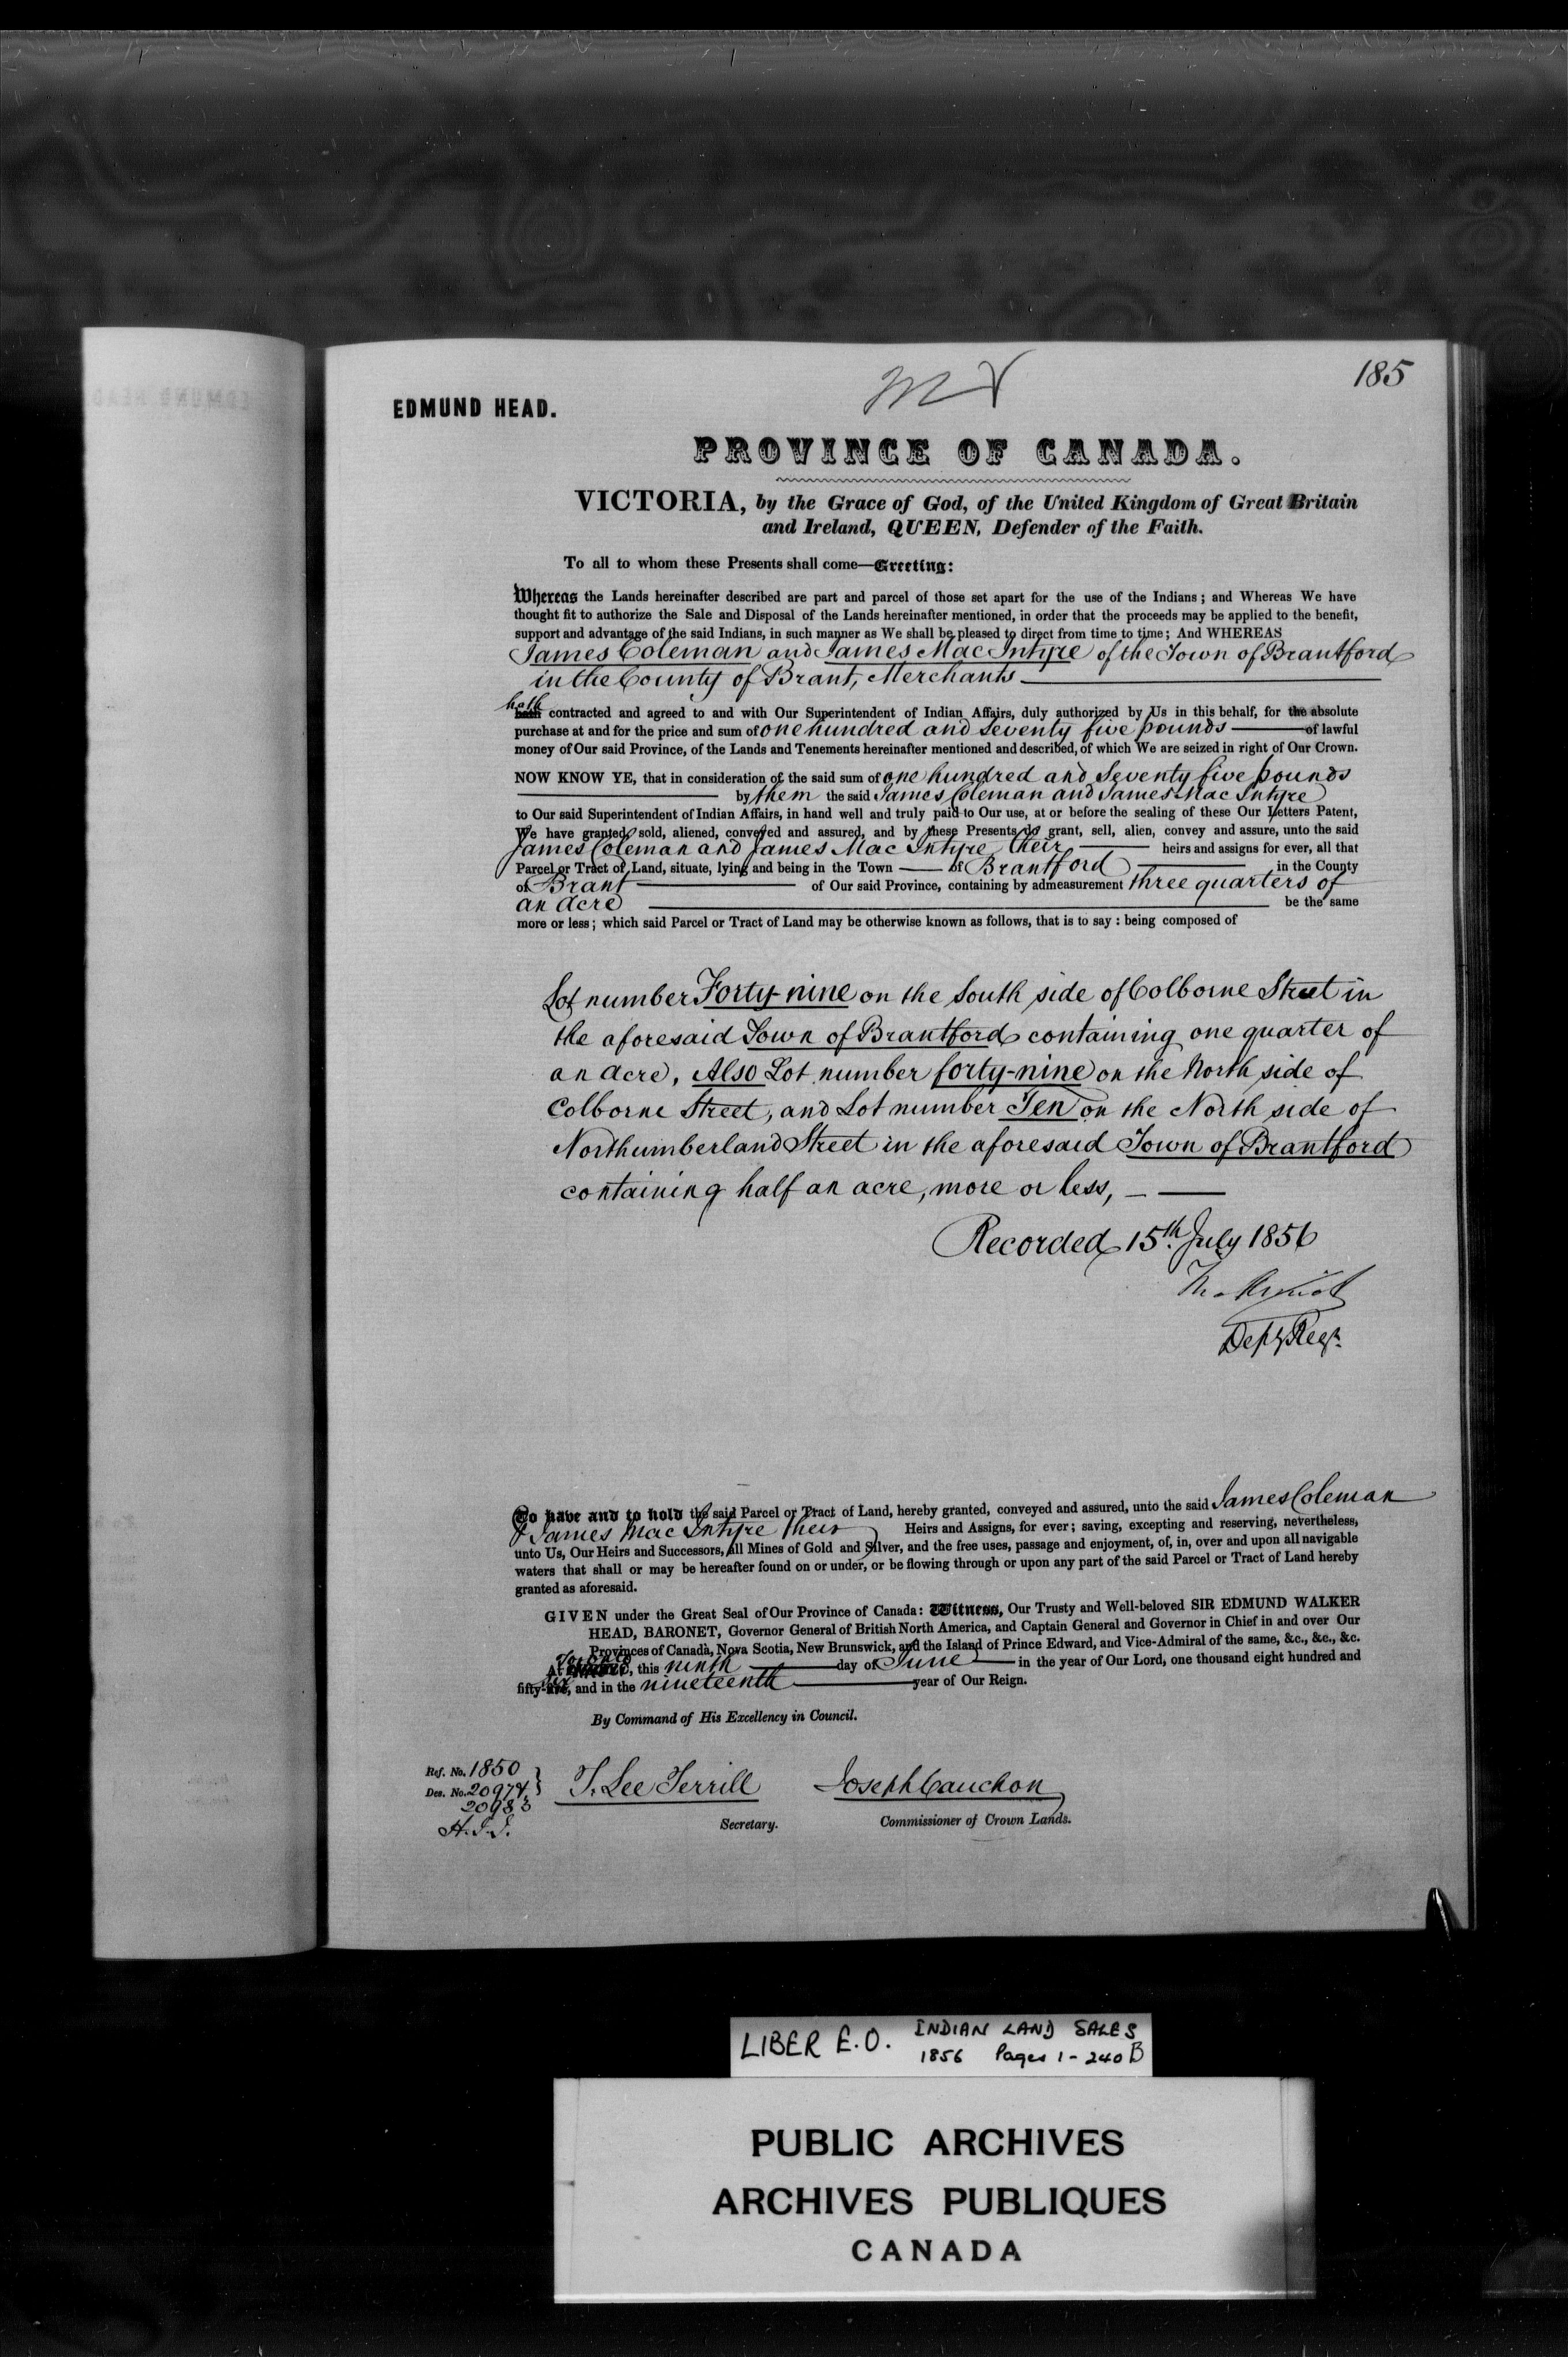 185
EDMUND HEAD.
PROVINCE OF CANADA.
VICTORIA, by the Grace of God, of the United Kingdom of Great Britain
and Ireland, QUEEN, Defender of the Faith.
To all to whom these Presents shall come—Greeting:
Whereas the Lands hereinafter described are part and parcel of those set apart for the use of the Indians; and Whereas We have
thought fit to authorize the Sale and Disposal of the Lands hereinafter mentioned, in order that the proceeds may be applied to the benefit,
support and advantage of the said Indians, in such manner as We shall be pleased to direct from time to time; And WHEREAS
James Coleman and James Mac Intyre of the Town of Brantford
in the County of Brant, Merchants
hath contracted and agreed to and with Our Superintendent of Indian Affairs, duly authorized by Us in this behalf, for the absolute
purchase at and for the price and sum of one hundred and Seventy five pounds of lawful
money of Our said Province, of the Lands and Tenements hereinafter mentioned and described, of which We are seized in right of Our Crown.
NOW KNOW YE, that in consideration of the said sum of one hundred and Seventy five pounds
by them the said James Coleman and James Mac Intyre
to Our said Superintendent of Indian Affairs, in hand well and truly paid to Our use, at or before the sealing of these Our Letters Patent,
We have granted, sold, aliened, conveyed and assured, and by these Presents do grant, sell, alien, convey and assure, unto the said
James Coleman and James Mac Intyre, their heirs and assigns for ever, all that
Parcel or Tract of Land, situate, lying and being in the Town of Brantford in the County
of Brant of Our said Province, containing by admeasurement three quarters of
an acre be the same
more or less; which said Parcel or Tract of Land may be otherwise known as follows, that is to say: being composed of
Lot number Forty-nine on the South side of Colborne Street in
the aforesaid Town of Brantford containing one quarter of
an acre, Also Lot number forty-nine on the North side of
Colborne Street, and Lot number Ten on the North side of
Northumberland Street in the aforesaid Town of Brantford
containing half an acre, more or less,
Recorded 15th July 1856
Depy Regr.
To have and to hold the said Parcel or Tract of Land, hereby granted, conveyed and assured, unto the said James Coleman
& James Mac Intyre their Heirs and Assigns, for ever; saving, excepting and reserving, nevertheless,
unto Us, Our Heirs and Successors, all Mines of Gold and Silver, and the free uses, passage and enjoyment, of, in, over and upon all navigable
waters that shall or may be hereafter found on or under, or be flowing through or upon any part of the said Parcel or Tract of Land hereby
granted as aforesaid.
GIVEN under the Great Seal of Our Province of Canada: Witness, Our Trusty and Well-beloved SIR EDMUND WALKER
HEAD, BARONET, Governor General of British North America, and Captain General and Governor in Chief in and over Our
Provinces of Canada, Nova Scotia, New Brunswick, and the Island of Prince Edward, and Vice-Admiral of the same, &c., &c., &c.
At Toronto, this ninth day of June in the year of Our Lord, one thousand eight hundred and
fifty-six, and in the nineteenth year of Our Reign.
By Command of His Excellency in Council.
Ref. No. 1850
Des. No. 20974
20983
H.J.J.
T. Lee Terrill
Secretary.
Joseph Cauchon
Commissioner of Crown Lands.
LIBER E.O. INDIAN LAND SALES
1856 Pages 1-240 B
PUBLIC ARCHIVES
ARCHIVES PUBLIQUES
CANADA